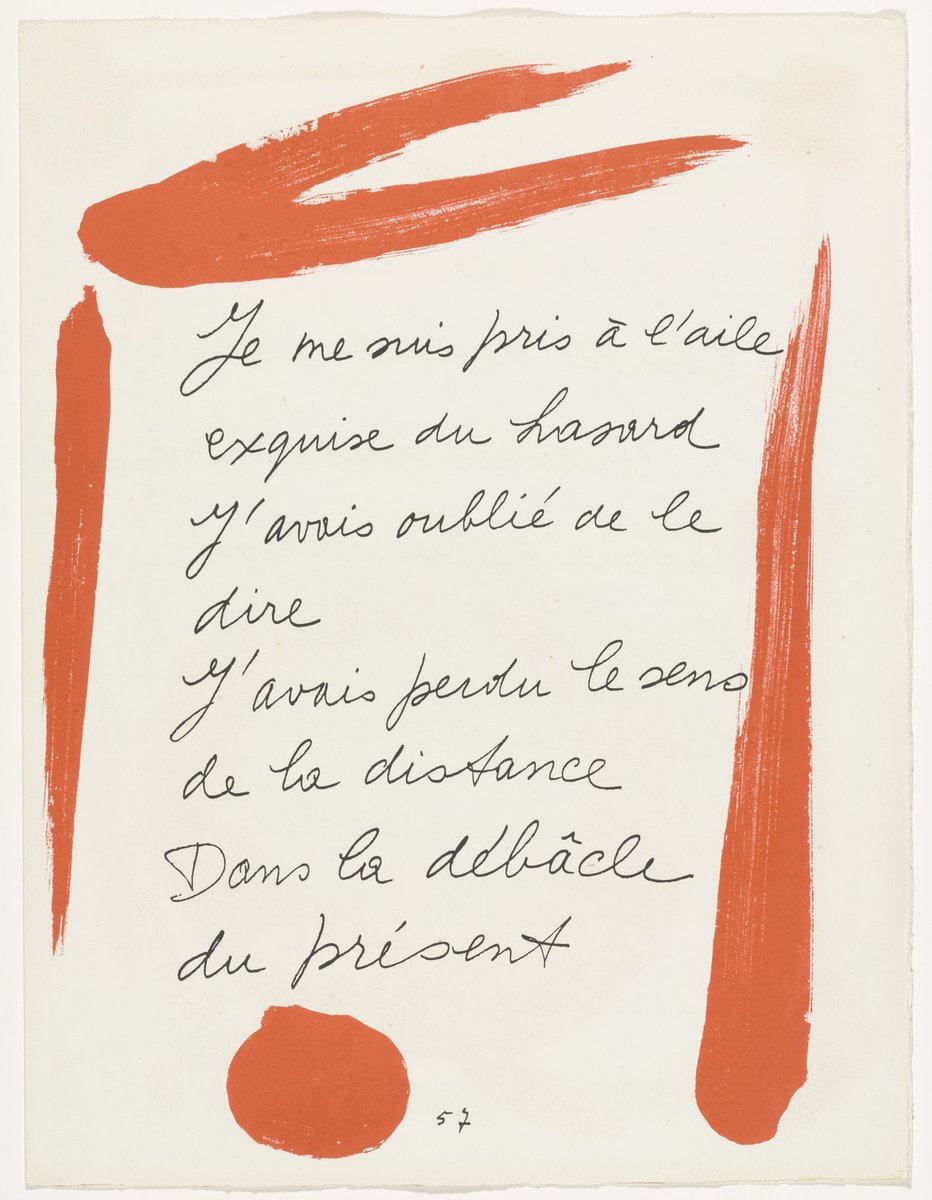 Je me suis pris à l'aile
exquise du hasard
J'avais oublié de le
dire
J'avais perdu le sens
de la distance
Dans la débâcle
du présent
57